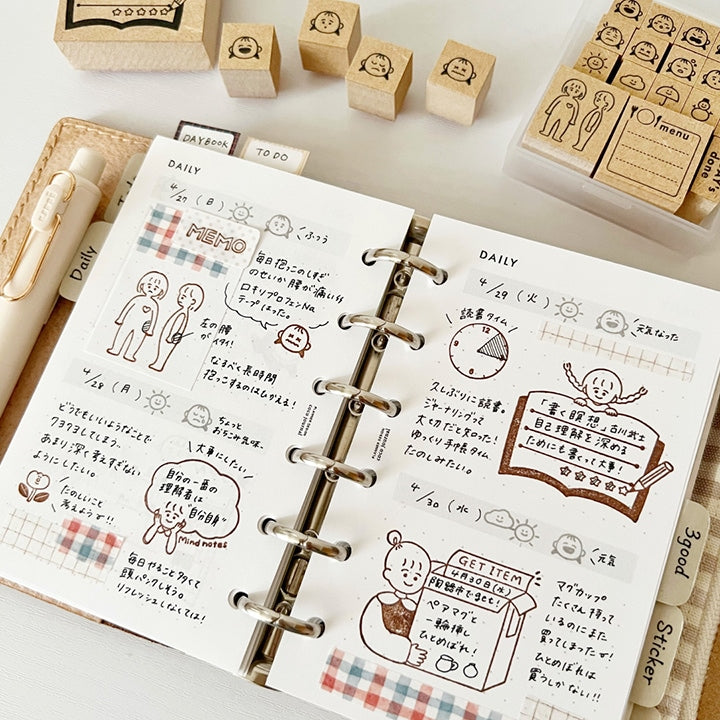 DAYBOOK
TO DO
Daily
DAILY
4/27 (日)
ふつう
MEMO
毎日抱っこのしすぎ
のせいか腰が痛いから
ロキソプロフェンNa
テープはった。
左の腰
がイタイ!
なるべく長時間
抱っこするのはひかえる!
4/28 (月)
ちょっと
おちこみ気味、
どうでもいいようなことで
クヨクヨしてしまう、
あまり深く考えすぎない
ようにしたい。
大事にしたい
自分の一番の
理解者は
"自分自身"
Mind notes
たのしいこと
考えようで!!
毎日やること多くて
頭パンクしそう。
リフレッシュしなくては!
DAILY
4/29 (火)
元気なった
読書タイム
12
久しぶりに読書。
ジャーナリングって
大切だと知った!
ゆっくり手帳タイム
たのしみたい。
「書く瞑想」古川武士
自己理解を深める
ためにも書くって大事!
4/30 (水)
元気
GET ITEM
4月30日(水)
陶器市でません!
ペアマグと
一輪挿し
ひとめぼれ!
マグカップ
たくさん持って
いるのにまた
買ってしまったで!
ひとめぼれは
買うしかない!!
menu
done
3good
Sticker